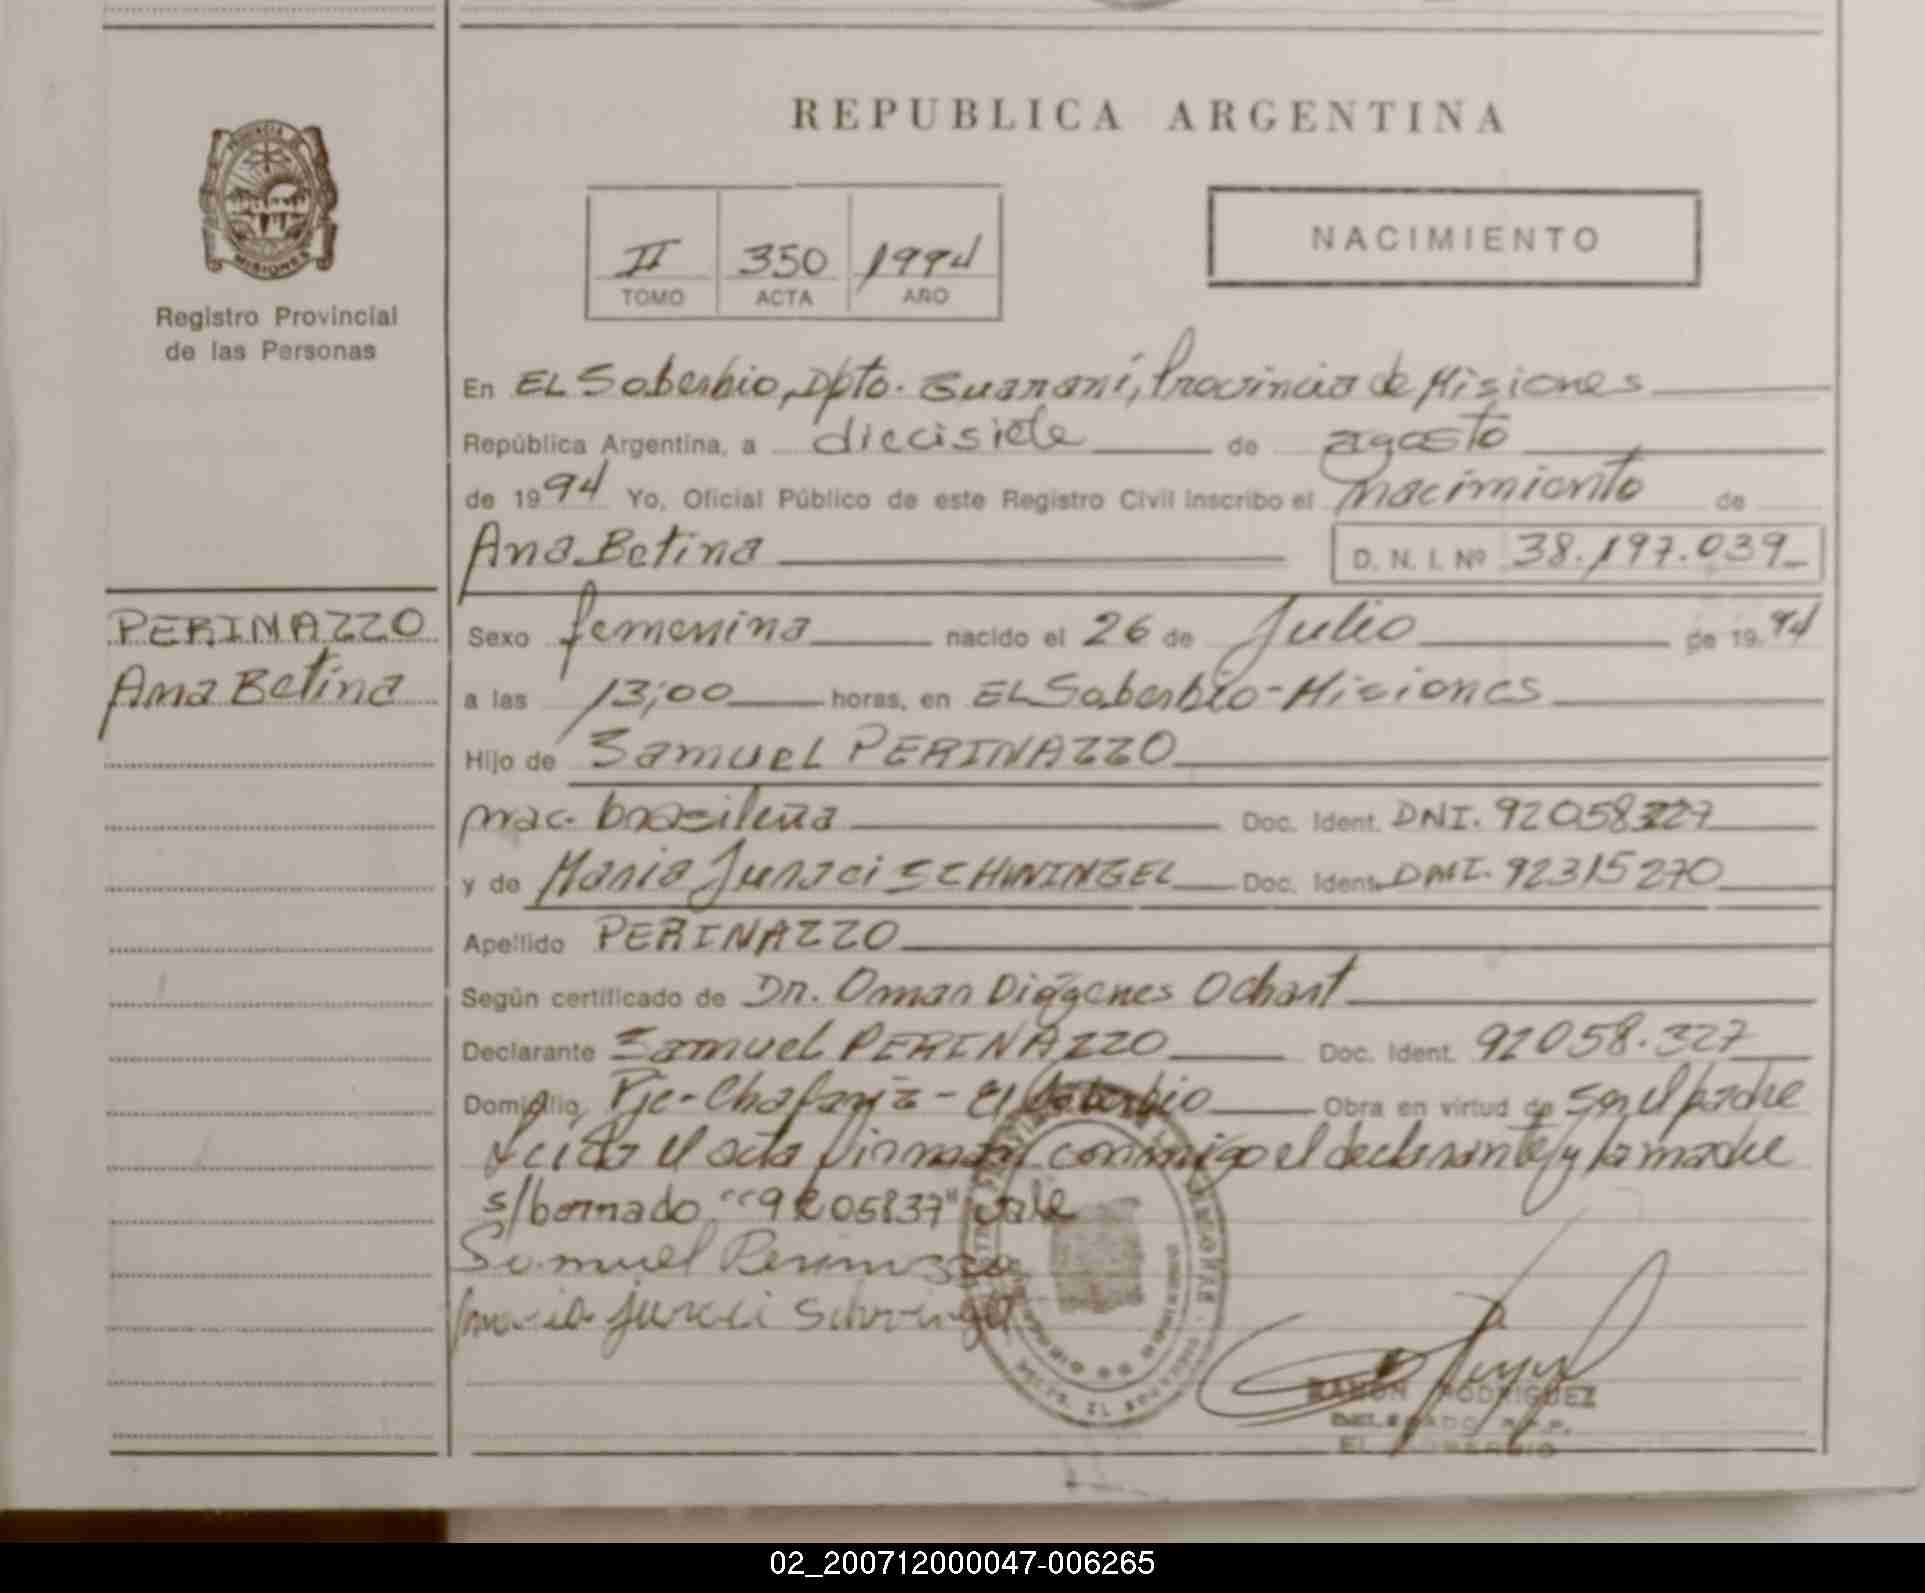 REPUBLICA ARGENTINA
MISIONES
Registro Provincial
de las Personas
II 350 1994
TOMO ACTA AÑO
NACIMIENTO
En EL Soberbio, Dpto. Guaraní, Provincia de Misiones
República Argentina, a diecisiete de agosto
de 1994 Yo, Oficial Público de este Registro Civil inscribo el nacimiento de
Ana Betina D. N. I. Nº 38.197.039
PERINAZZO
Ana Betina
Sexo femenina nacido el 26 de Julio de 1994
a las 13;00 horas, en EL Soberbio - Misiones
Hijo de Samuel PERINAZZO
nac. brasileña Doc. Ident. DNI. 92058327
y de Maria Juraci SCHWINGEL Doc. Ident. DNI. 92315270
Apellido PERINAZZO
Según certificado de Dr. Omar Diógenes Ochart
Declarante Samuel PERINAZZO Doc. Ident. 92058.327
Domicilio Pje - Chafariz - El Soberbio Obra en virtud de ser el padre
Leída el acta firman conmigo el declarante y la madre
s/borrado "9205837" vale
Samuel Perinazzo
maria juraci Schwingel
RAMON RODRIGUEZ
DELEGADO R.P.P.
EL SOBERBIO
02_200712000047-006265